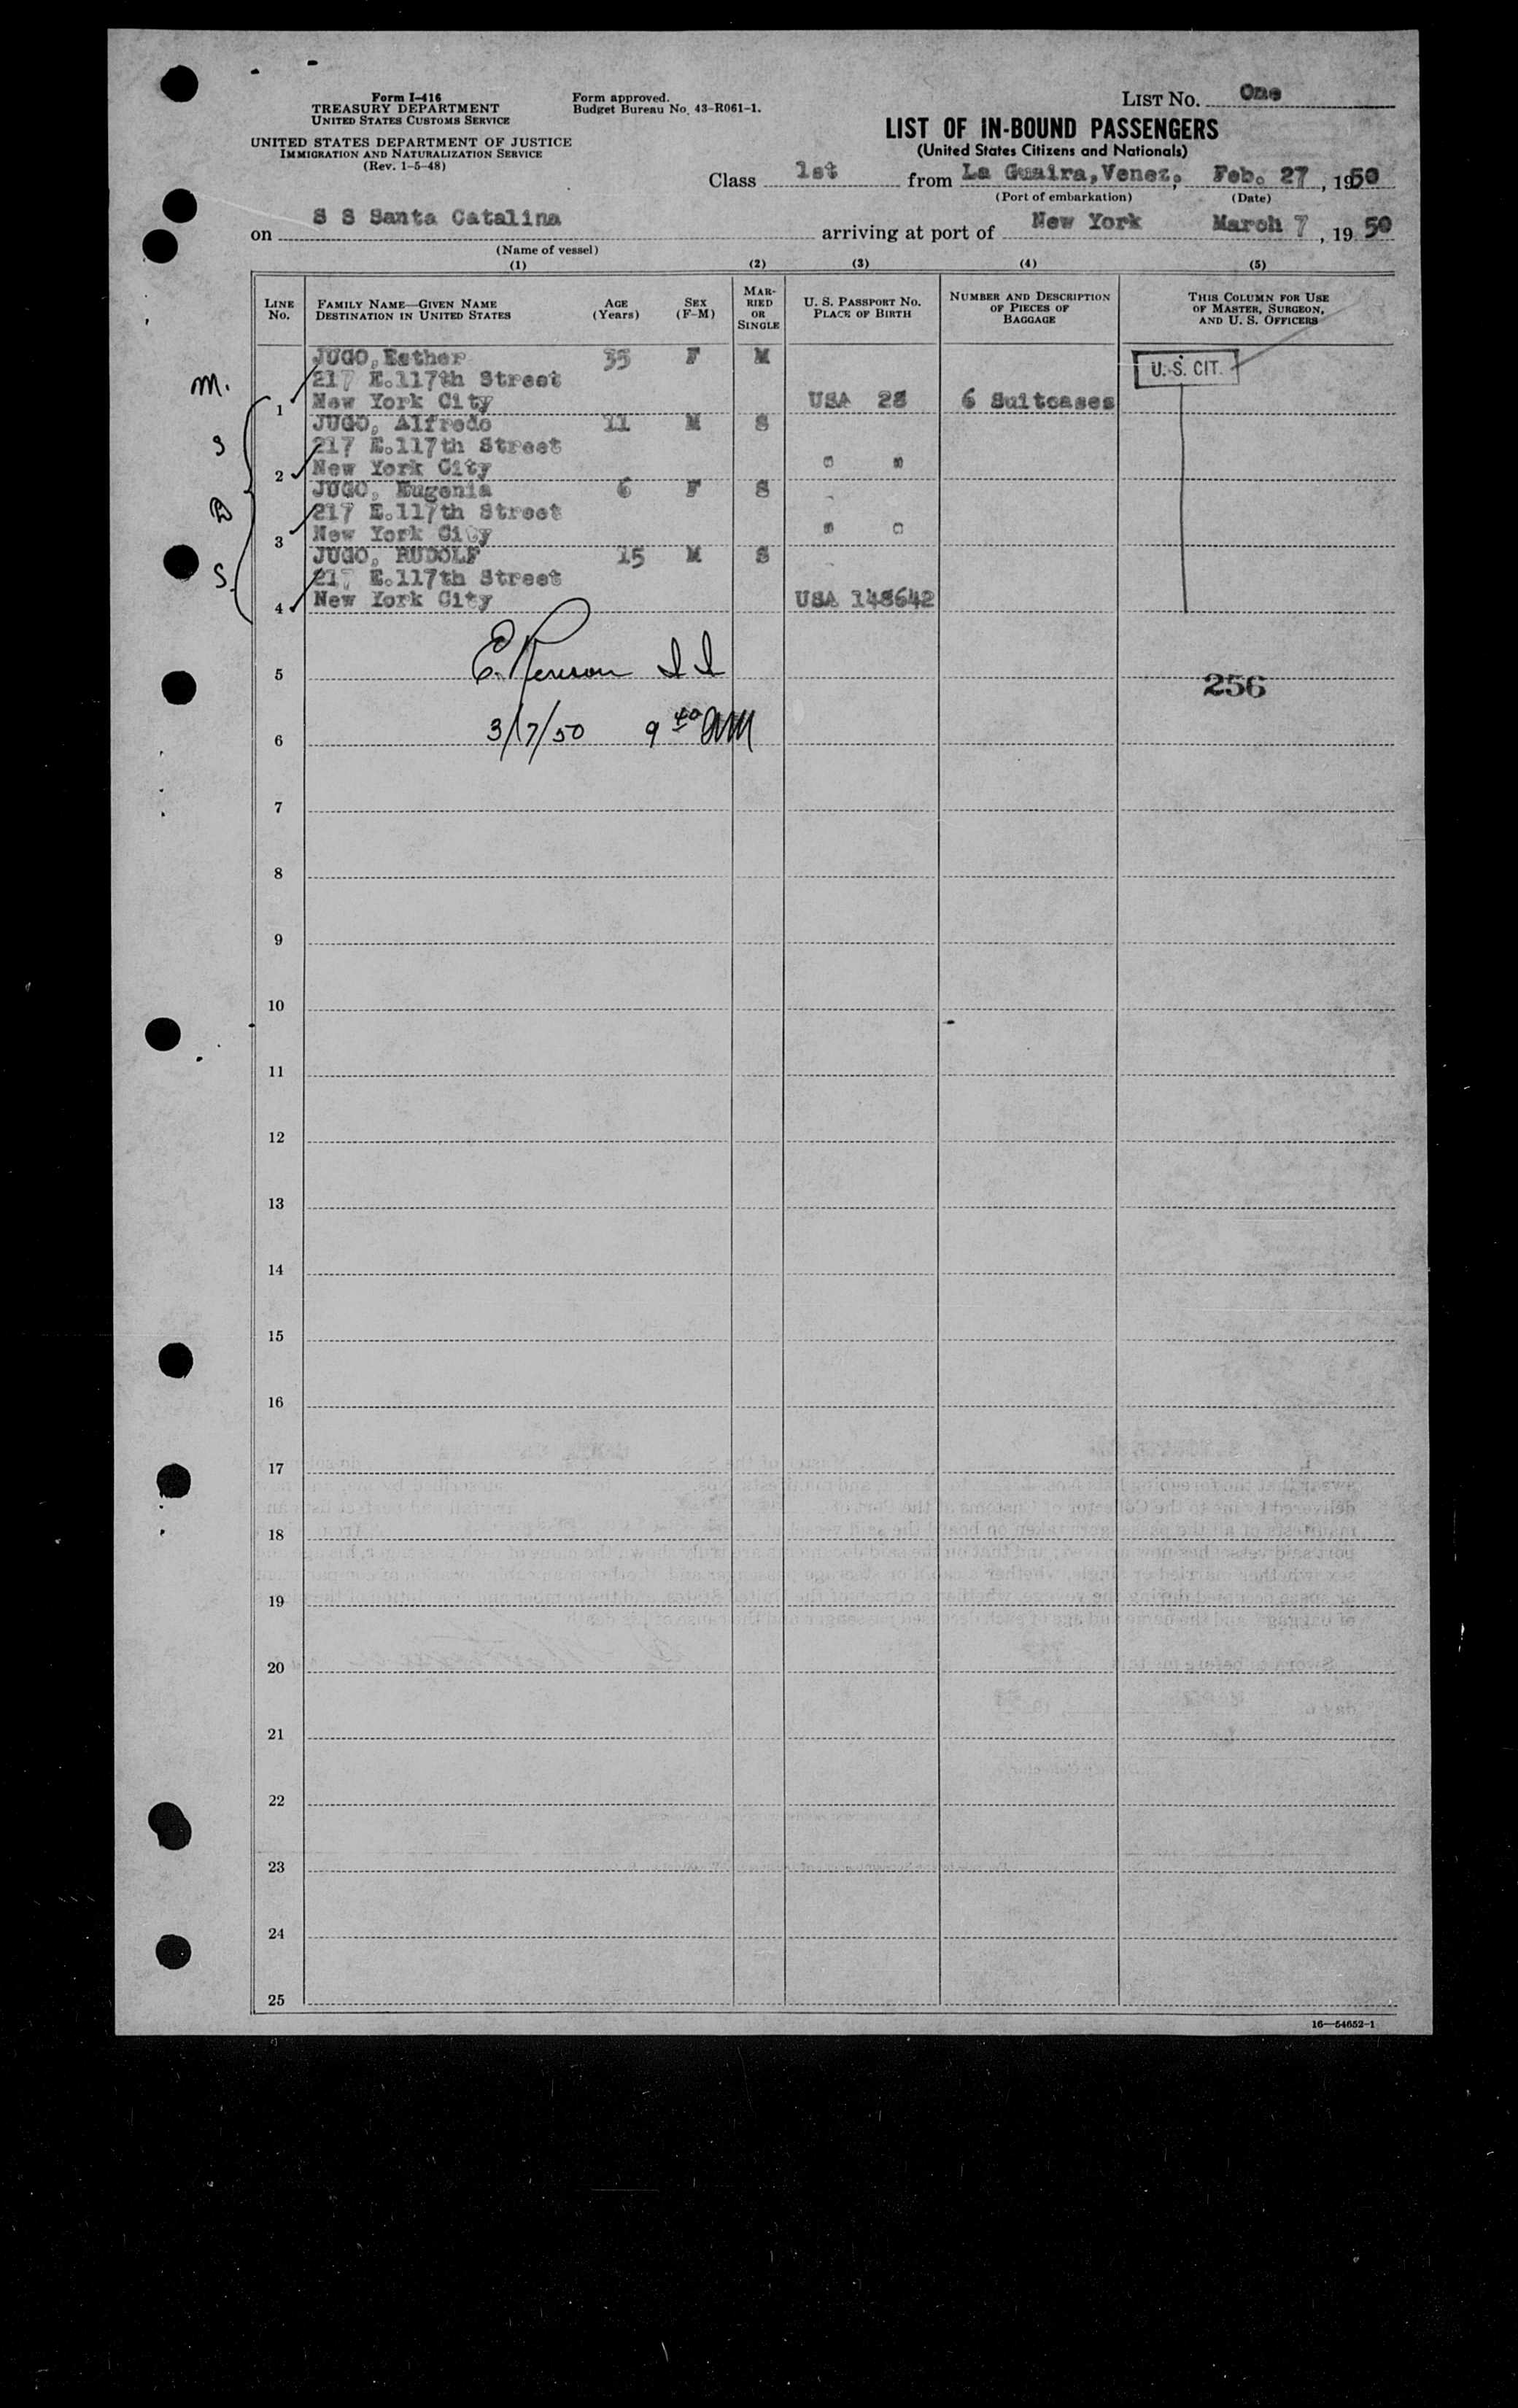 Form I-416
TREASURY DEPARTMENT
UNITED STATES CUSTOMS SERVICE
UNITED STATES DEPARTMENT OF JUSTICE
IMMIGRATION AND NATURALIZATION SERVICE
(Rev. 1-5-48)
Form approved.
Budget Bureau No. 43-R061-1.
LIST No. One
LIST OF IN-BOUND PASSENGERS
(United States Citizens and Nationals)
Class 1st from La Guaira, Venez., Feb. 27, 1950
(Port of embarkation) (Date)
on S S Santa Catalina arriving at port of New York March 7, 19 50
(Name of vessel)
(1) (2) (3) (4) (5)
LINE No.
FAMILY NAME—GIVEN NAME
DESTINATION IN UNITED STATES
AGE (Years)
SEX (F-M)
MARRIED OR SINGLE
U. S. PASSPORT NO.
PLACE OF BIRTH
NUMBER AND DESCRIPTION OF PIECES OF BAGGAGE
THIS COLUMN FOR USE OF MASTER, SURGEON, AND U. S. OFFICERS
JUGO, Esther 35 F M U. S. CIT.
m. 217 E.117th Street
1 New York City USA 28 6 Suitcases
JUGO, Alfredo 11 M S
S 217 E.117th Street
2 New York City " "
JUGO, Eugenia 6 F S
D 217 E.117th Street
3 New York City " "
JUGO, RUDOLF 15 M S
S. 217 E.117th Street
4 New York City USA 148642
5 256
6 3/7/50 9 40 AM
7
8
9
10
11
12
13
14
15
16
17
18
19
20
21
22
23
24
25
16—54652-1